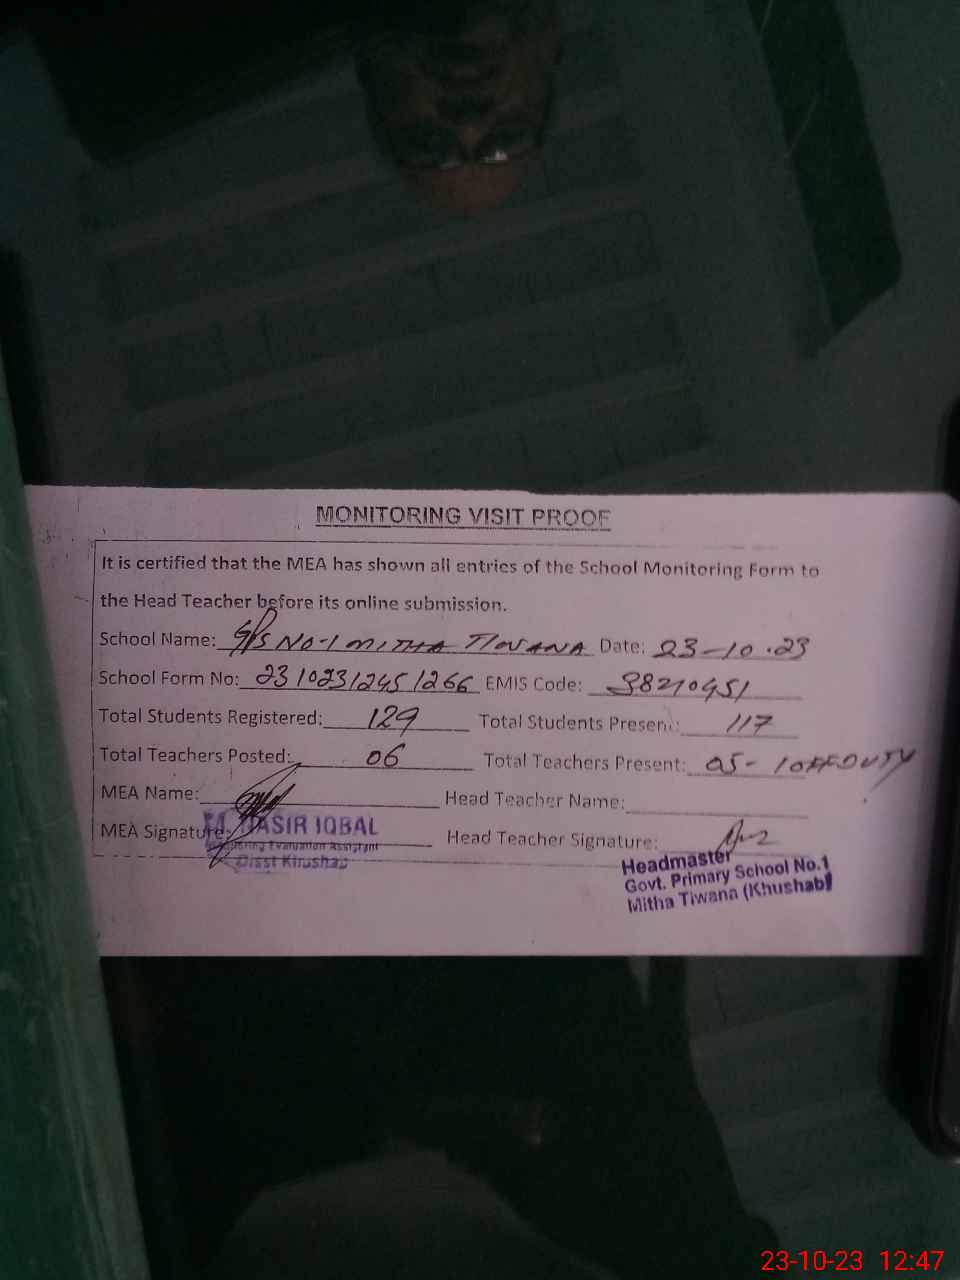 MONITORING VISIT PROOF
It is certified that the MEA has shown all entries of the School Monitoring Form to
the Head Teacher before its online submission.
School Name: GPS NO-1 MITHA TIWANA Date: 23-10-23
School Form No: 23102312451266 EMIS Code: 38210451
Total Students Registered: 129 Total Students Present: 117
Total Teachers Posted: 06 Total Teachers Present: 05 - 1 OFF DUTY
MEA Name: Head Teacher Name:
MEA Signature: IQBAL Head Teacher Signature:
Monitoring Evaluation Assistant
Disst Khushab
Headmaster
Govt. Primary School No.1
Mitha Tiwana (Khushab)
23-10-23 12:47